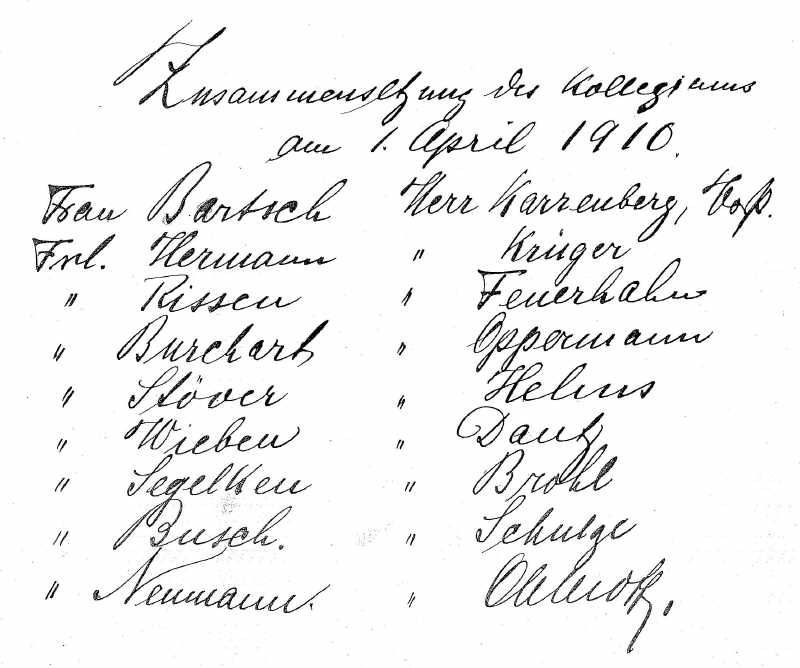 Zusammensetzung des Kollegiums
am 1. April 1910.
Frau Bartsch Herr Karrenberg, Voß.
Frl. Hermann " Krüger
" Rissen " Feuerhahn
" Burchart " Oppermann
" Stöver " Helms
" Wieben " Dantz
" Segelken " Brohl
" Busch. " Schulze
" Neumann. "